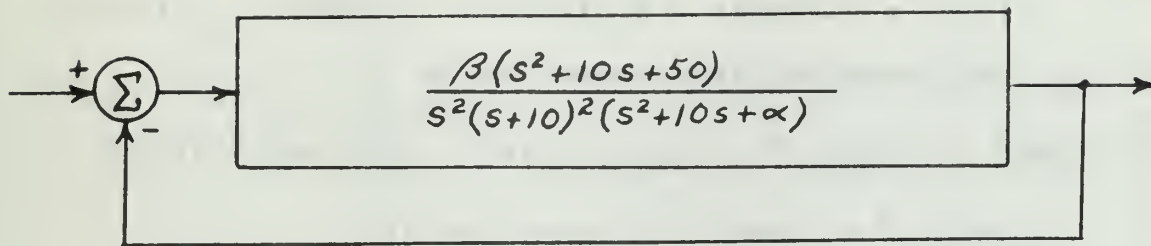 +
Σ
-
β(s²+10s+50)
s²(s+10)²(s²+10s+α)